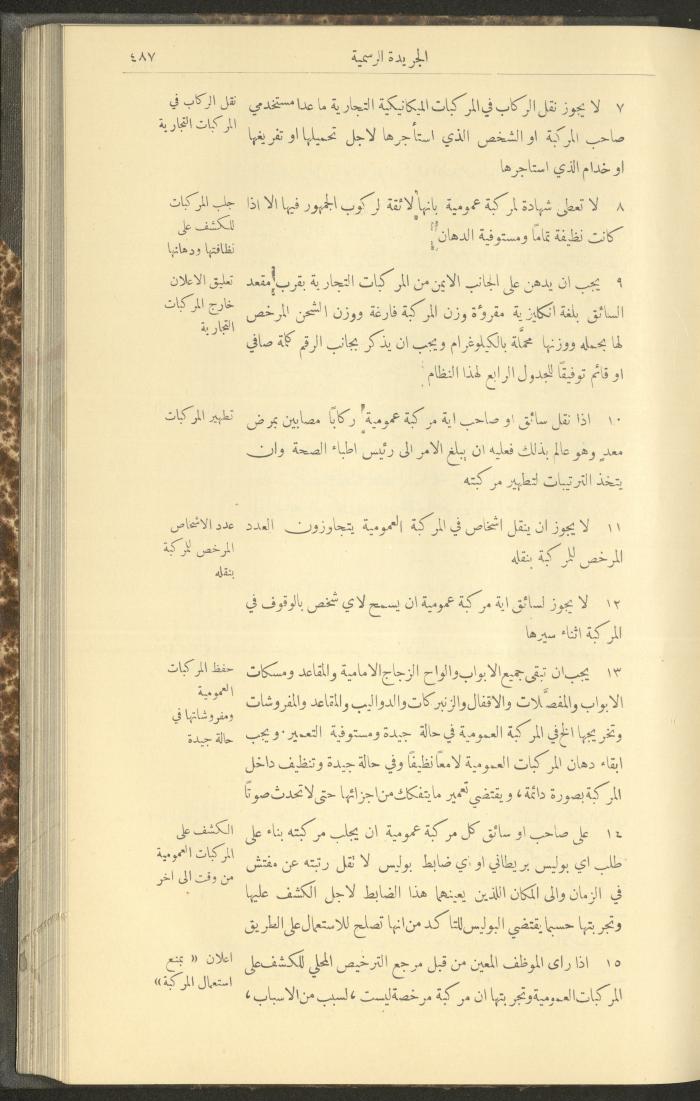 الجريدة الرسمية
٤٨٧
٧ لا يجوز نقل الركاب في المركبات الميكانيكية التجارية ما عدا مستخدمي
صاحب المركبة او الشخص الذي استأجرها لاجل تحميلها او تفريغها
او خدام الذي استاجرها
نقل الركاب في
المركبات التجارية
٨ لا تعطى شهادة لمركبة عمومية بانها لائقة لركوب الجمهور فيها الا اذا
كانت نظيفة تمامًا ومستوفية الدهان
جلب المركبات
للكشف على
نظافتها ودهانها
٩ يجب ان يدهن على الجانب الايمن من المركبات التجارية بقرب مقعد
السائق بلغة انكليزية مقروءة وزن المركبة فارغة ووزن الشحن المرخص
لها بحمله ووزنها محمَّلة بالكيلوغرام ويجب ان يذكر بجانب الرقم كلمة صافي
او قائم توفيقًا للجدول الرابع لهذا النظام
تعليق الاعلان
خارج المركبات
التجارية
١٠ اذا نقل سائق او صاحب اية مركبة عمومية ركابًا مصابين بمرض
معدٍ وهو عالم بذلك فعليه ان يبلغ الامر الى رئيس اطباء الصحة وان
يتخذ الترتيبات لتطهير مركبته
تطهير المركبات
١١ لا يجوز ان ينقل اشخاص في المركبة العمومية يتجاوزون العدد
المرخص للمركبة بنقله
عدد الاشخاص
المرخص للمركبة
بنقله
١٢ لا يجوز لسائق اية مركبة عمومية ان يسمح لاي شخص بالوقوف في
المركبة اثناء سيرها
١٣ يجب ان تبقى جميع الابواب والواح الزجاج الامامية والمقاعد ومسكات
الابواب والمفصَّلات والاقفال والزنبركات والدواليب والمقاعد والمفروشات
وتخريجها الخ في المركبة العمومية في حالة جيدة ومستوفية التعمير. ويجب
ابقاء دهان المركبات العمومية لامعًا نظيفًا وفي حالة جيدة وتنظيف داخل
المركبة بصورة دائمة، ويقتضي تعمير ما يتفكك من اجزائها حتى لا تحدث صوتًا
حفظ المركبات
العمومية
ومفروشاتها في
حالة جيدة
١٤ على صاحب او سائق كل مركبة عمومية ان يجلب مركبته بناء على
طلب اي بوليس بريطاني او اي ضابط بوليس لا تقل رتبته عن مفتش
في الزمان والى المكان اللذين يعينهما هذا الضابط لاجل الكشف عليها
وتجربتها حسبما يقتضي البوليس للتاكد من انها تصلح للاستعمال على الطريق
الكشف على
المركبات العمومية
من وقت الى اخر
١٥ اذا راى الموظف المعين من قبل مرجع الترخيص المحلي للكشف على
المركبات العمومية وتجربتها ان مركبة مرخصة ليست، لسبب من الاسباب،
اعلان « بمنع
استعمال المركبة»